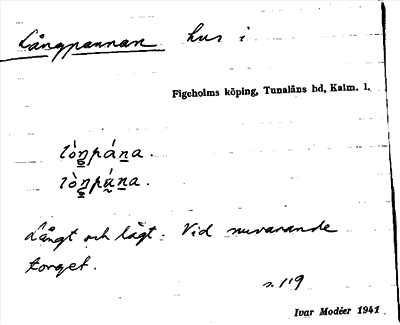 Långpannan hus i
Figeholms köping, Tunaläns hd, Kalm. l.
lòŋpána.
lòŋpána.
Långt och lågt. Vid nuvarande
torget.
s. 119
Ivar Modéer 1941